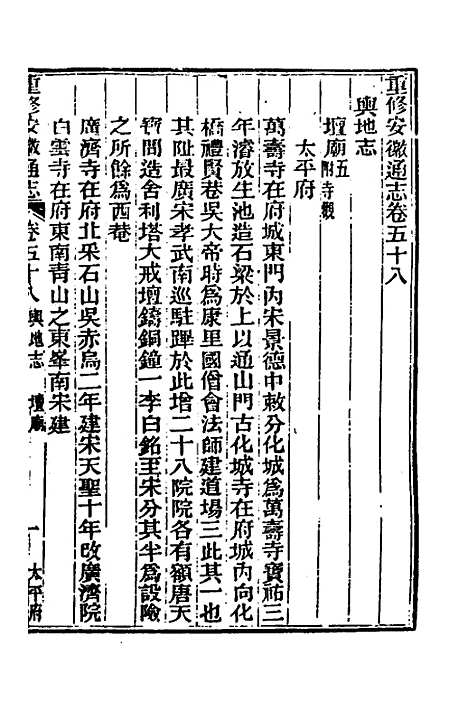 重修安徽通志卷五十八
輿地志
壇廟五附寺觀
太平府
萬壽寺在府城東門內宋景德中敕分化城為萬壽寺寶祐三
年濬放生池造石梁於上以通山門古化城寺在府城內向化
橋禮賢巷吳大帝時為康里國僧會法師建道場三此其一也
其阯最廣宋孝武南巡駐蹕於此增二十八院院各有額唐天
寶間造舍利塔大戒壇鑄銅鐘一李白銘至宋分其半為設險
之所餘為西巷
廣濟寺在府北采石山吳赤烏二年建宋天聖十年改廣濟院
白雲寺在府東南青山之東峯南宋建
重修安徽通志 卷五十八 輿地志 壇廟 一 太平府